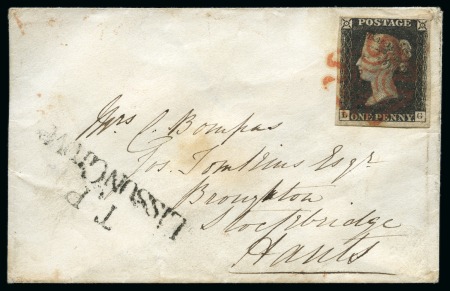 POSTAGE
L G
ONE PENNY
Mrs C. Bompas
Jos. Tomkins Esqr
Broughton
Stockbridge
Hants
T.P
LISSON